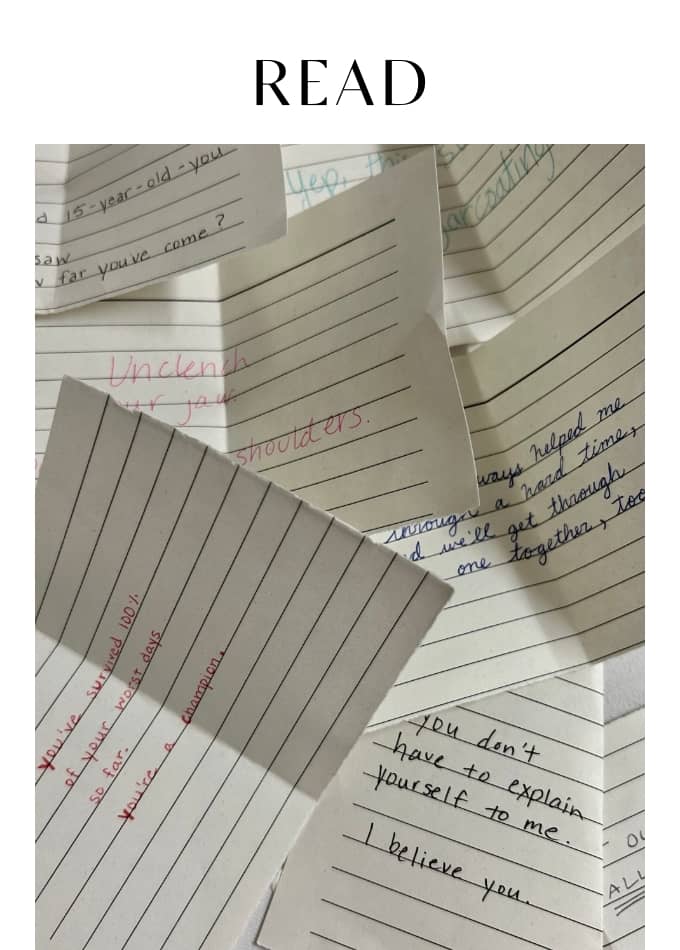 READ
15-year-old-you
saw
far youve come?
Yep,
Unclench
jaw.
shoulders.
helped me
a hard time,
we'll get through
one together, too
you've survived 100%
of your worst days
so far.
you're a champion.
you don't
have to explain
yourself to me.
I believe you.